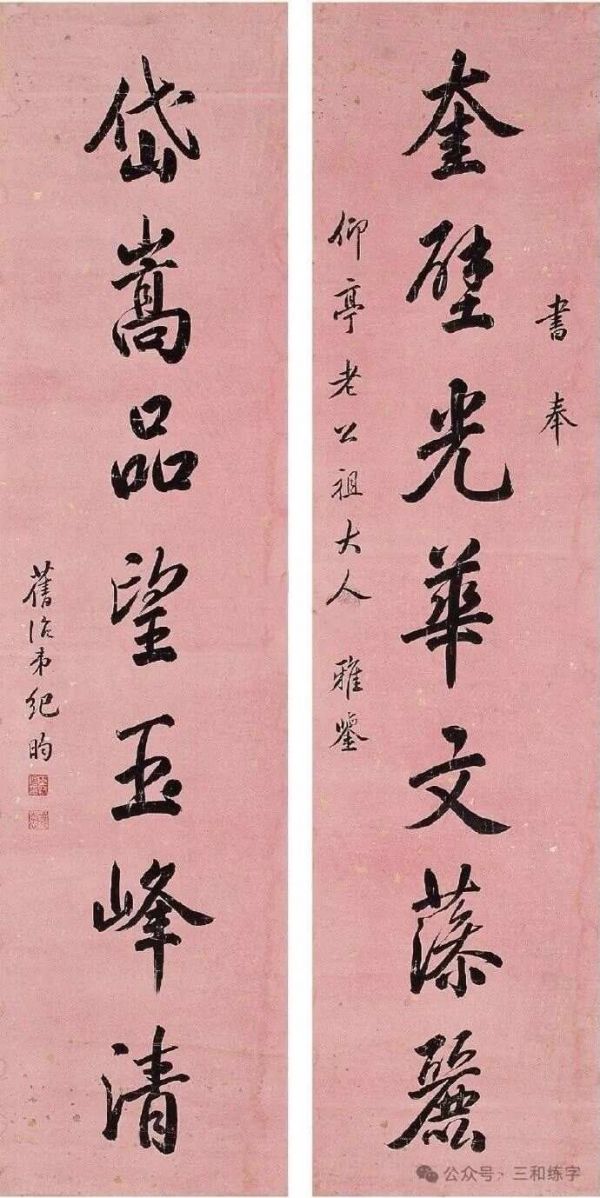 書奉
奎壁光華文藻麗
仰亭老公祖大人 雅鑒
岱嵩品望玉峰清
舊治弟紀昀
公众号·三和练字